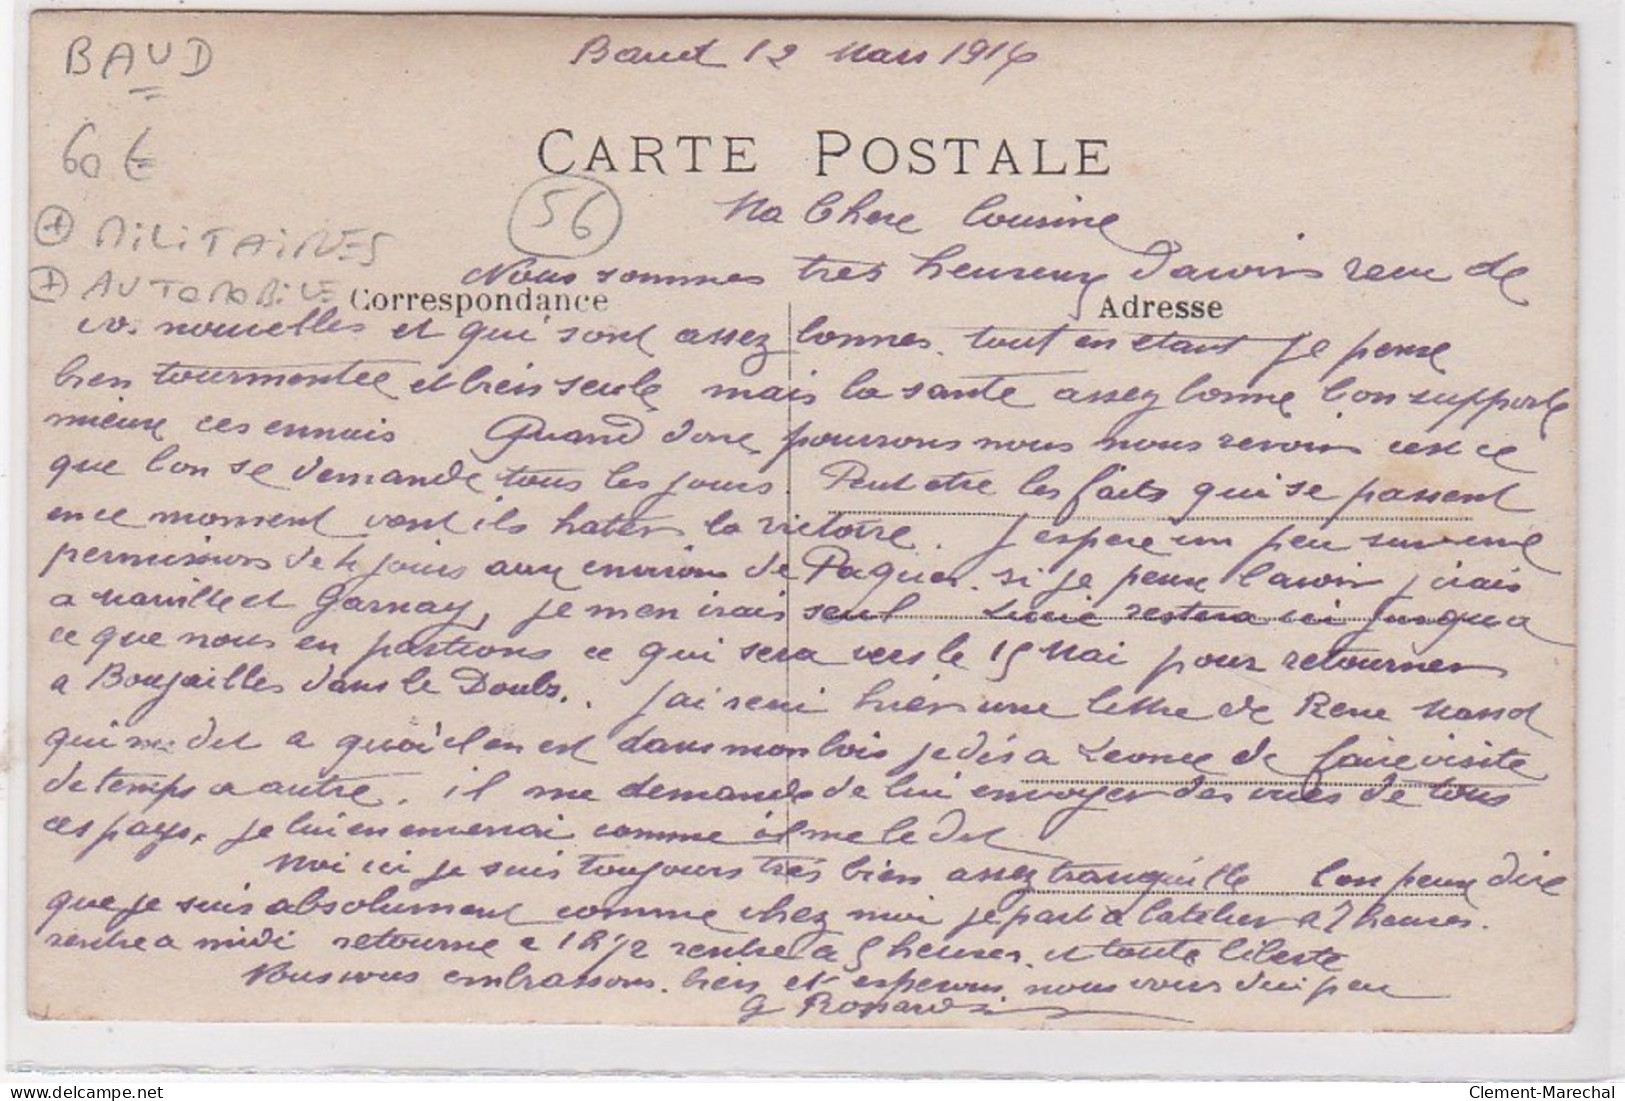 BAUD
60 €
+ MILITAIRES
+ AUTOMOBILE
56
Baud 12 Mars 1916
CARTE POSTALE
Ma Chere Cousine
Nous sommes tres heureux d'avoir recu de
Correspondance
Adresse
vos nouvelles et qui sont assez bonnes. tout en etant je pense
bien tourmentée et bien seule mais la santé assez bonne l'on supporte
mieux ces ennuis Quand donc pourrons nous nous revoir cest ce
que lon se demande tous les jours. Peut etre les faits qui se passent
en ce moment vont ils hater la victoire. J'espere un peu sur une
permission de 4 jours aux environs de Paques. si je peux l'avoir j'irais
a et Garnay, je m'en irais seul Lucie restera ici jusqu a
ce que nous en partions ce qui sera vers le 15 Mai pour retourner
a Boujailles dans le Doubs.. J'ai recu hier une lettre de Rene
qui me dit a quoi il en est dans mon bois je dis a Leonce de faire visite
de temps a autre. il me demande de lui envoyer des vues de tous
ces pays, je lui en enverrai comme il me le dit
Moi ici je suis toujours très bien assez tranquille l'on peux dire
que je suis absolument comme chez moi je part a l'atelier a 7 heures.
rentre a midi retourne a 1 h 1/2 rentre a 5 heures. et toute liberté
Nous vous embrassons bien et esperons nous voir d'ici peu
G
Clement-Marechal